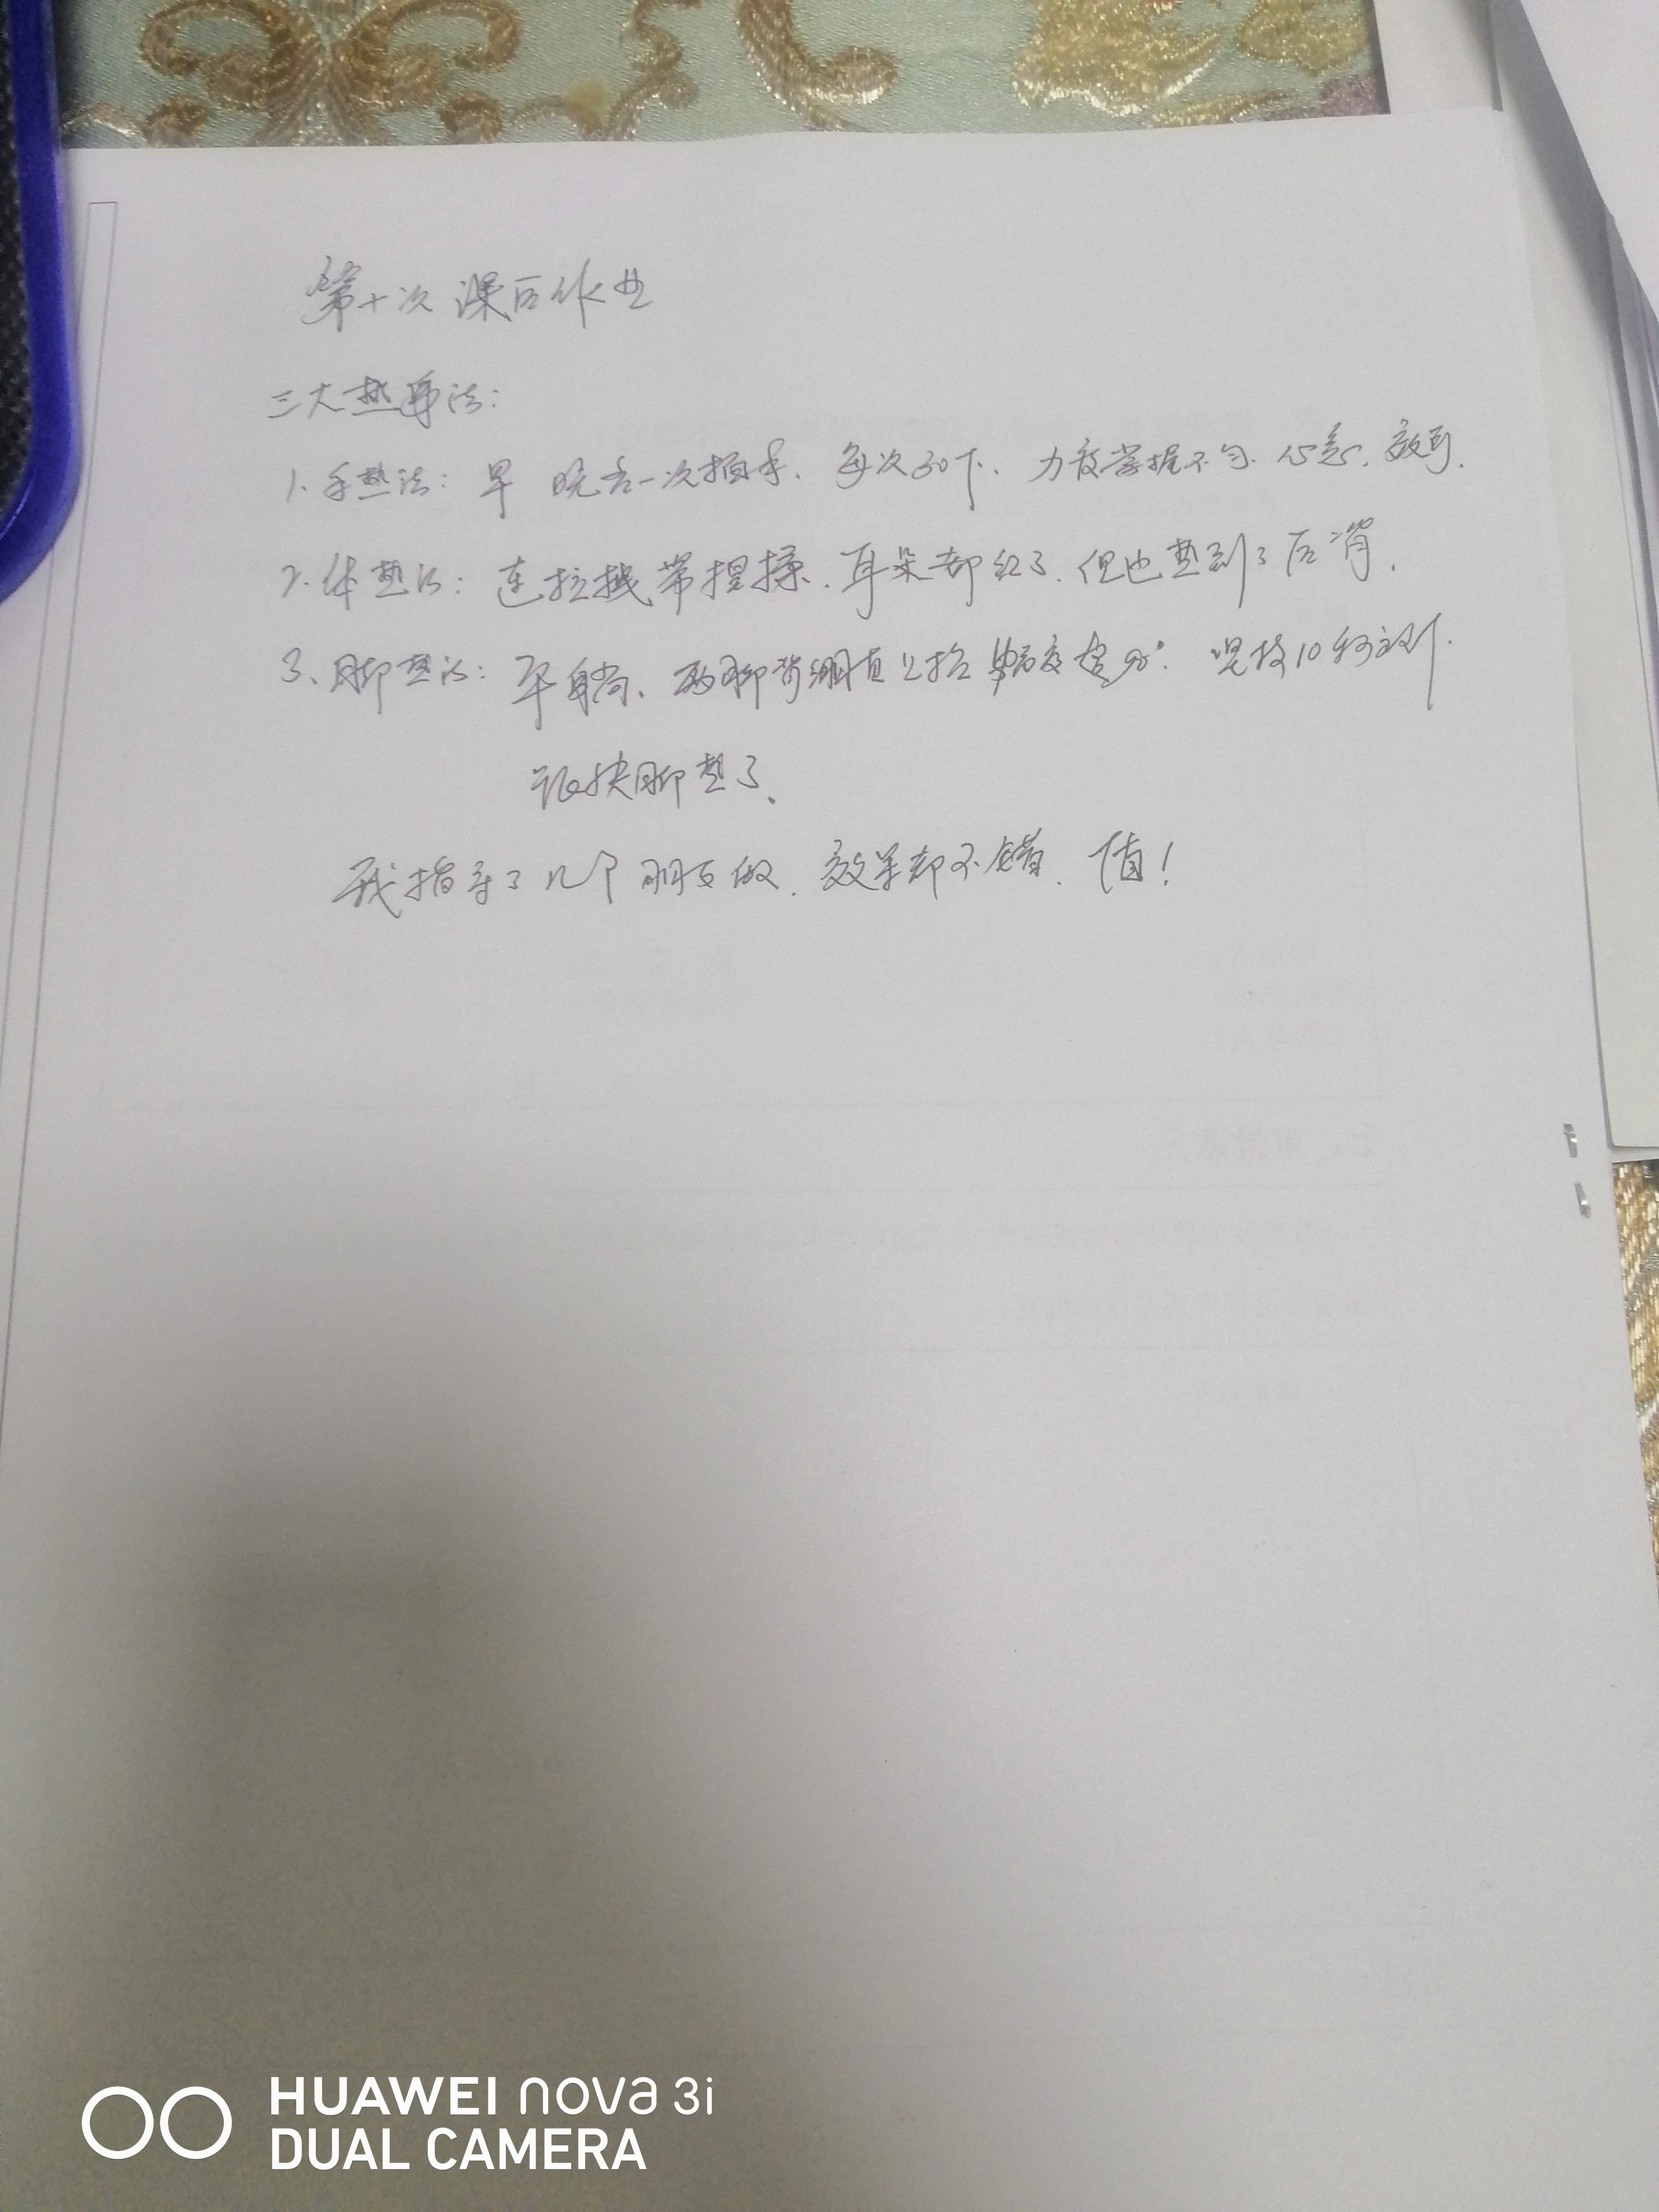 第十次 课后作业
三大热身法:
1. 手热法: 早 晚各一次拍手. 每次30下. 力度掌握不匀. 心急.
2. 体热法: 连拉带捏揉. 耳朵都红了. 但也热到了后背.
3. 脚热法: 平躺、两脚背绷直 坚持10秒
脚热了.
我指导了几个朋友做. 效果都不错. 值!
HUAWEI nova 3i
DUAL CAMERA